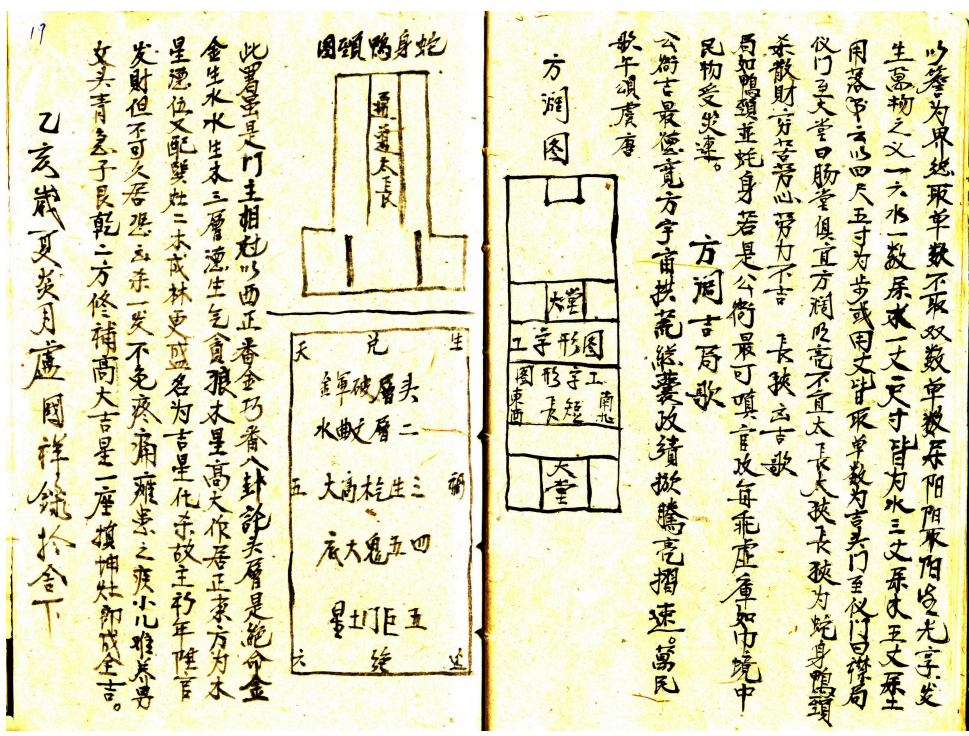 以簷为界總取单数不取双数单数属阳阳取阳生尤享发
生萬物之义一六水一数属水一丈一尺寸皆为水三丈属木五丈属土
用落书云以四尺五寸为步或用丈皆取单数为吉头门至仪门曰襟局
仪门至大堂曰肠堂俱宜方阔明亮不宜太長太狭長狭为蛇身鴨頸
杀散財劳苦劳心劳力不吉 長狭云吉歌
局如鴨頸並蛇身若是公衙最可嗔官攻每乖虚庫如巾境中
民物受灾速。
方润吉局歌
公衙古最德寬方宇宙拱荒總囊政績掀騰亮摺速。萬民
歌午頌虞唐
方润图
大堂
工字形图
工字形图
南北短
東西長
大堂
19
蛇身鴨頸图
甬道太長
此署虽是门主相尅以西正番金巧番八卦訣头層是絶命金
金生水水生木三層德生气貪狼木星高大作居正東方为木
星德伍又配雙灶二木成林更盛名为吉星化杀故主初年陞官
发財但不可久居恐 杀一发不免疼痛瘫患之疾小儿难养男
女头青急子艮乾二方修補高大吉星一座換坤灶即成全吉。
天 兑 生
头層破軍金
二層文曲水
五 三生杧高大 禍
四五鬼大底
五巨门土星
六 絶 延
乙亥歲夏炎月盧國祥錄於舍下